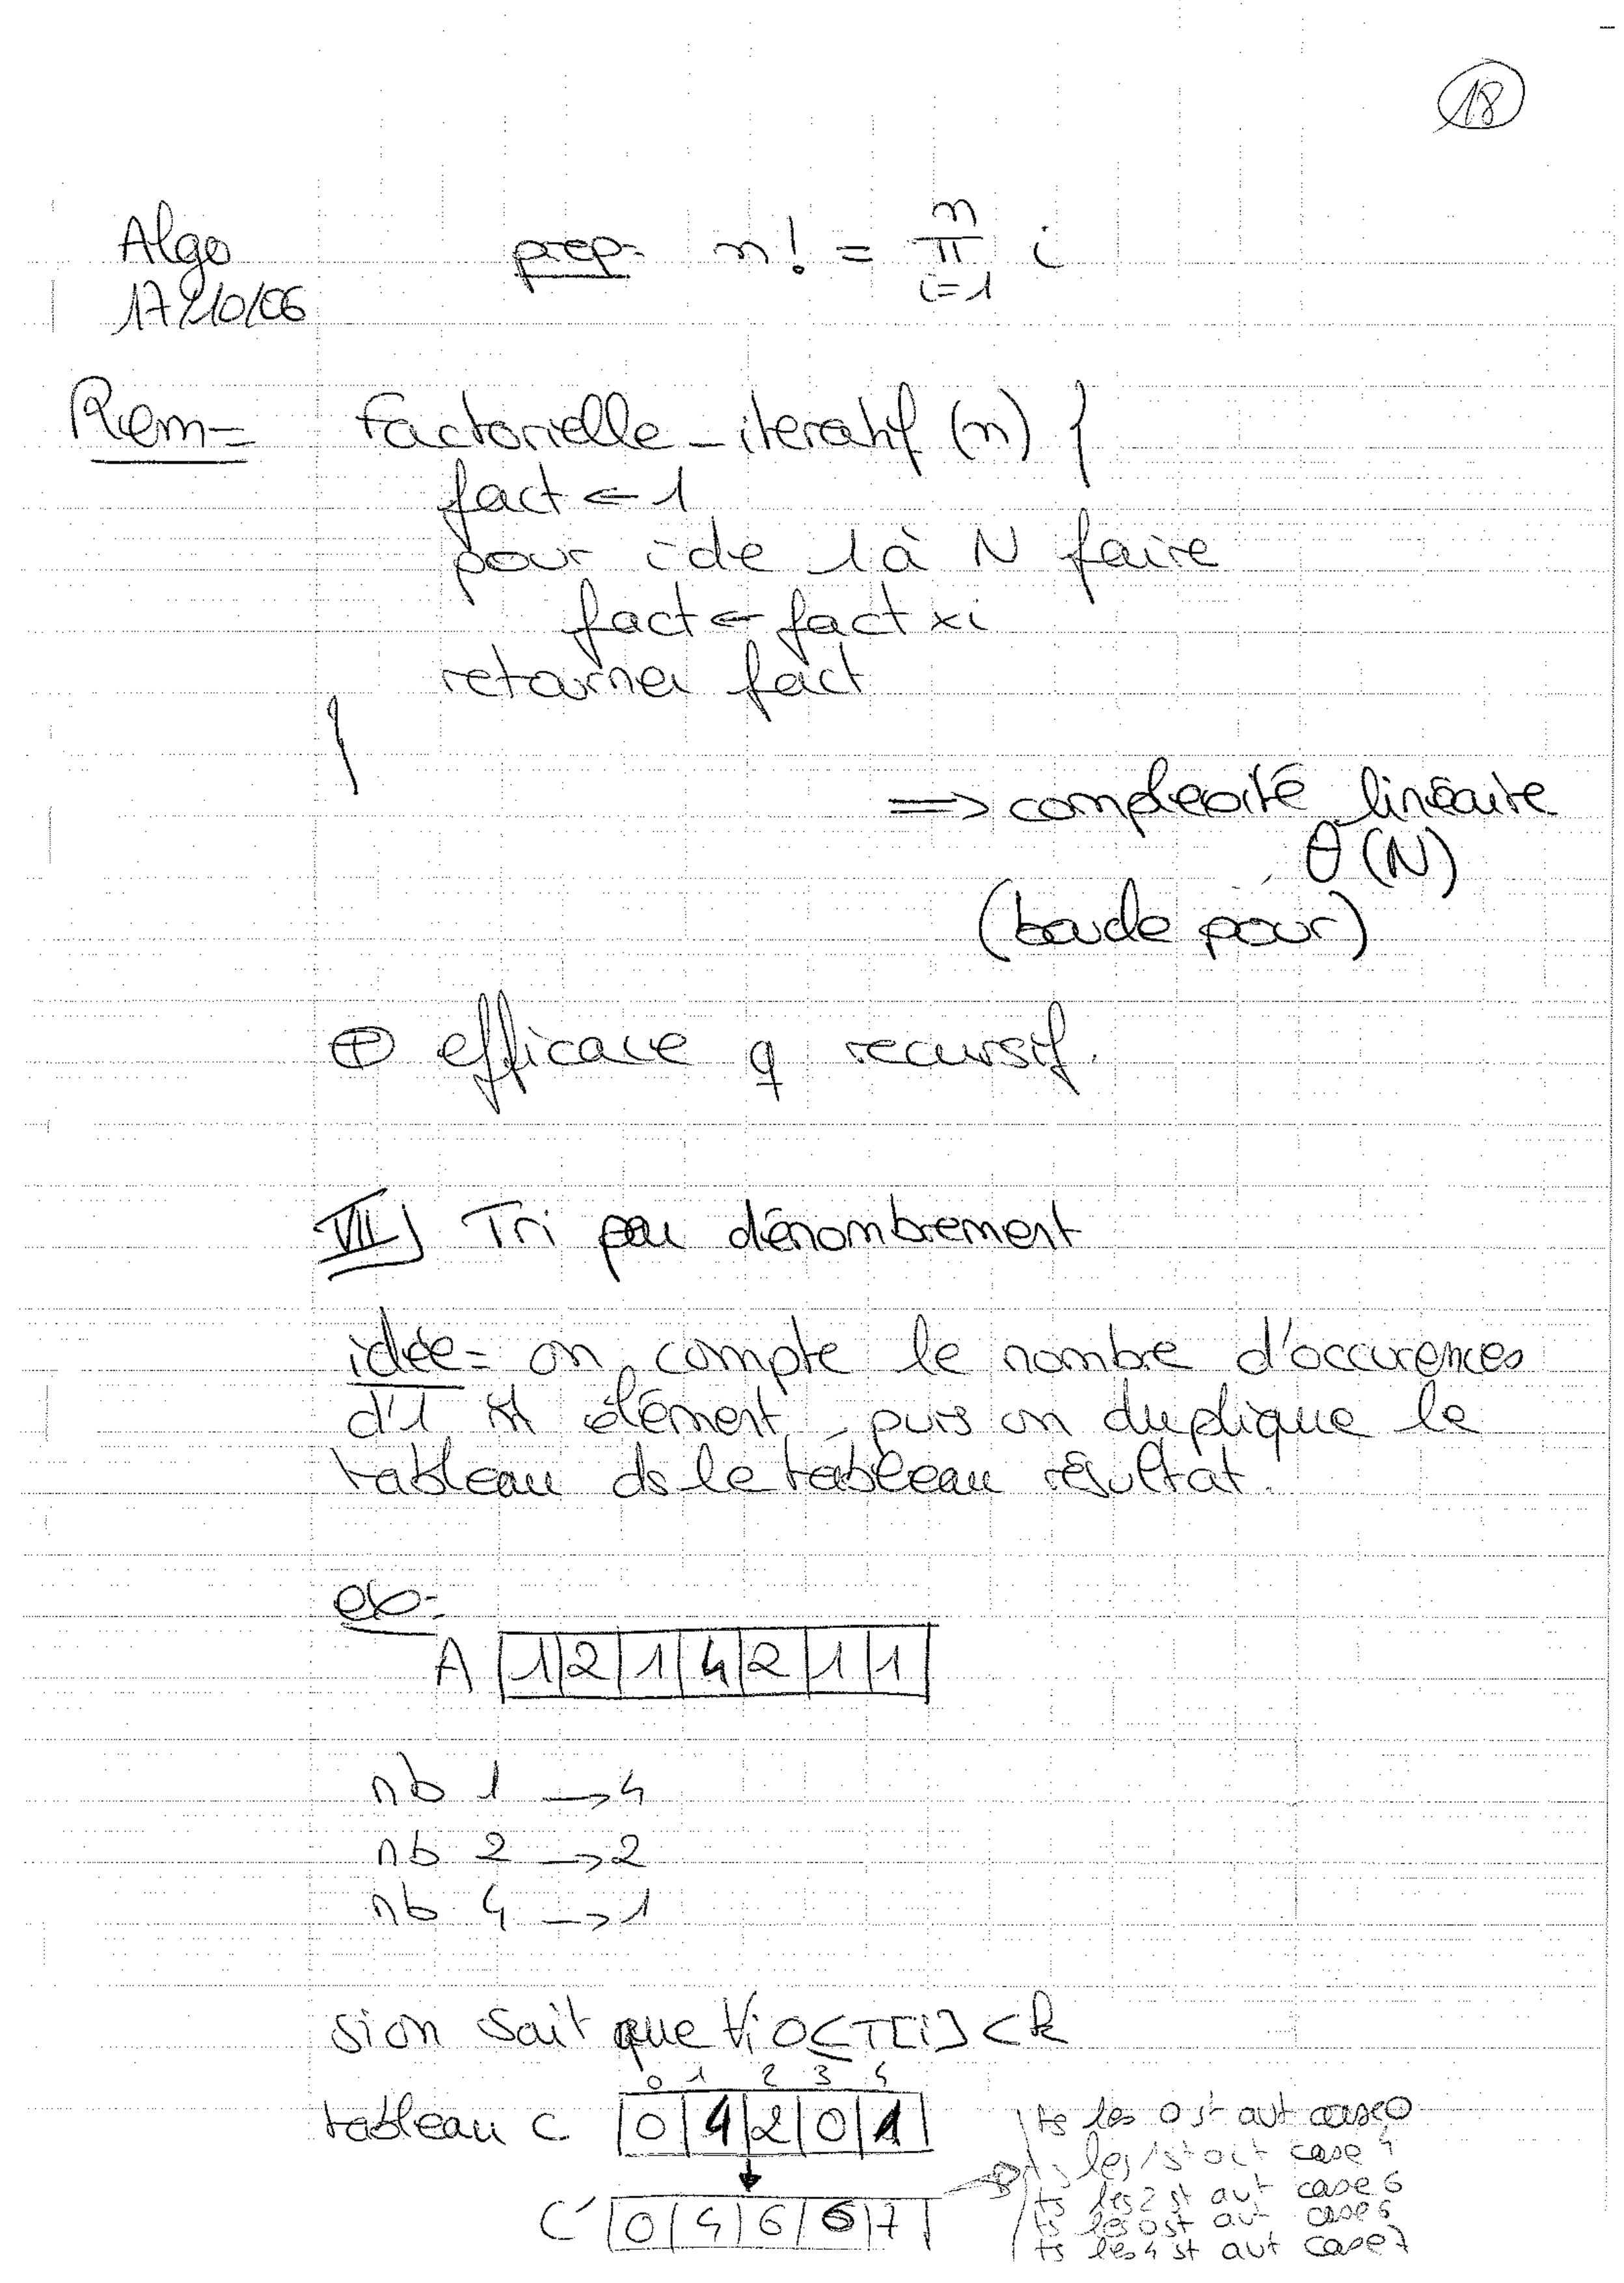 18
Algo
17/10/06
prop: n! = n π i=1 i
Rem= Factorielle_iteratif (n) {
fact ← 1
pour i de 1 à N faire
fact ← fact × i
retourner fact
}
=> complexité linéaire
θ(N)
(boucle pour)
⊕ efficace q recursif.
VII) Tri par dénombrement
idée= on compte le nombre d'occurences
d'1 élément, puis on duplique le
tableau ds le tableau résultat.
ex:
A |1|2|1|4|2|1|1|
nb 1 → 4
nb 2 → 2
nb 4 → 1
si on sait que ∀i 0≤T[i]<k
0 1 2 3 4
tableau C |0|4|2|0|1|
ts les 0 st avt case 0
ts les 1 st avt case 4
C' |0|4|6|6|7|
ts les 2 st avt case 6
ts les 0 st avt case 6
ts les 4 st avt case 7